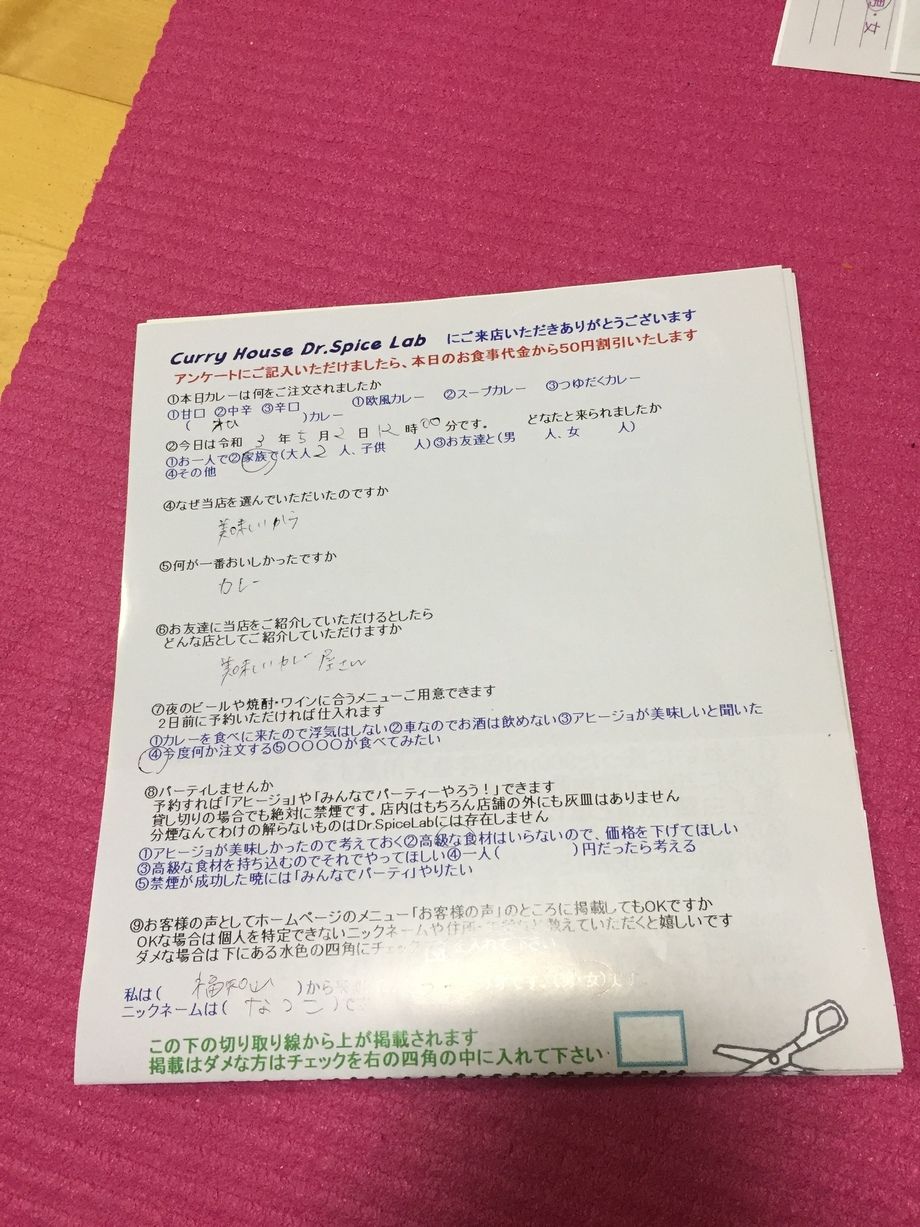 男・女
Curry House Dr.Spice Lab にご来店いただきありがとうございます
アンケートにご記入いただけましたら、本日のお食事代金から50円割引いたします
①本日カレーは何をご注文されましたか
①甘口 ②中辛 ③辛口 ①欧風カレー ②スープカレー ③つゆだくカレー
( )カレー
②今日は令和 3 年 5 月 2 日 12 時 00 分です。 どなたと来られましたか
①お一人で②家族で(大人 2 人、子供 人)③お友達と(男 人、女 人)
④その他
④なぜ当店を選んでいただいたのですか
美味しいから
⑤何が一番おいしかったですか
カレー
⑥お友達に当店をご紹介していただけるとしたら
どんな店としてご紹介していただけますか
美味しいカレー屋さん
⑦夜のビールや焼酎・ワインに合うメニューご用意できます
2日前に予約いただければ仕入れます
①カレーを食べに来たので浮気はしない②車なのでお酒は飲めない③アヒージョが美味しいと聞いた
④今度何か注文する⑤〇〇〇〇が食べてみたい
⑧パーティしませんか
予約すれば「アヒージョ」や「みんなでパーティーやろう!」できます
貸し切りの場合でも絶対に禁煙です。店内はもちろん店舗の外にも灰皿はありません
分煙なんてわけの解らないものはDr.SpiceLabには存在しません
①アヒージョが美味しかったので考えておく②高級な食材はいらないので、価格を下げてほしい
③高級な食材を持ち込むのでそれでやってほしい④一人( )円だったら考える
⑤禁煙が成功した暁には「みんなでパーティ」やりたい
⑨お客様の声としてホームページのメニュー「お客様の声」のところに掲載してもOKですか
OKな場合は個人を特定できないニックネームや住所・など教えていただくと嬉しいです
ダメな場合は下にある水色の四角にチェックを入れて下さい
私は( 福知山 )から 女)ます
ニックネームは( なつこ )で
この下の切り取り線から上が掲載されます
掲載はダメな方はチェックを右の四角の中に入れて下さい